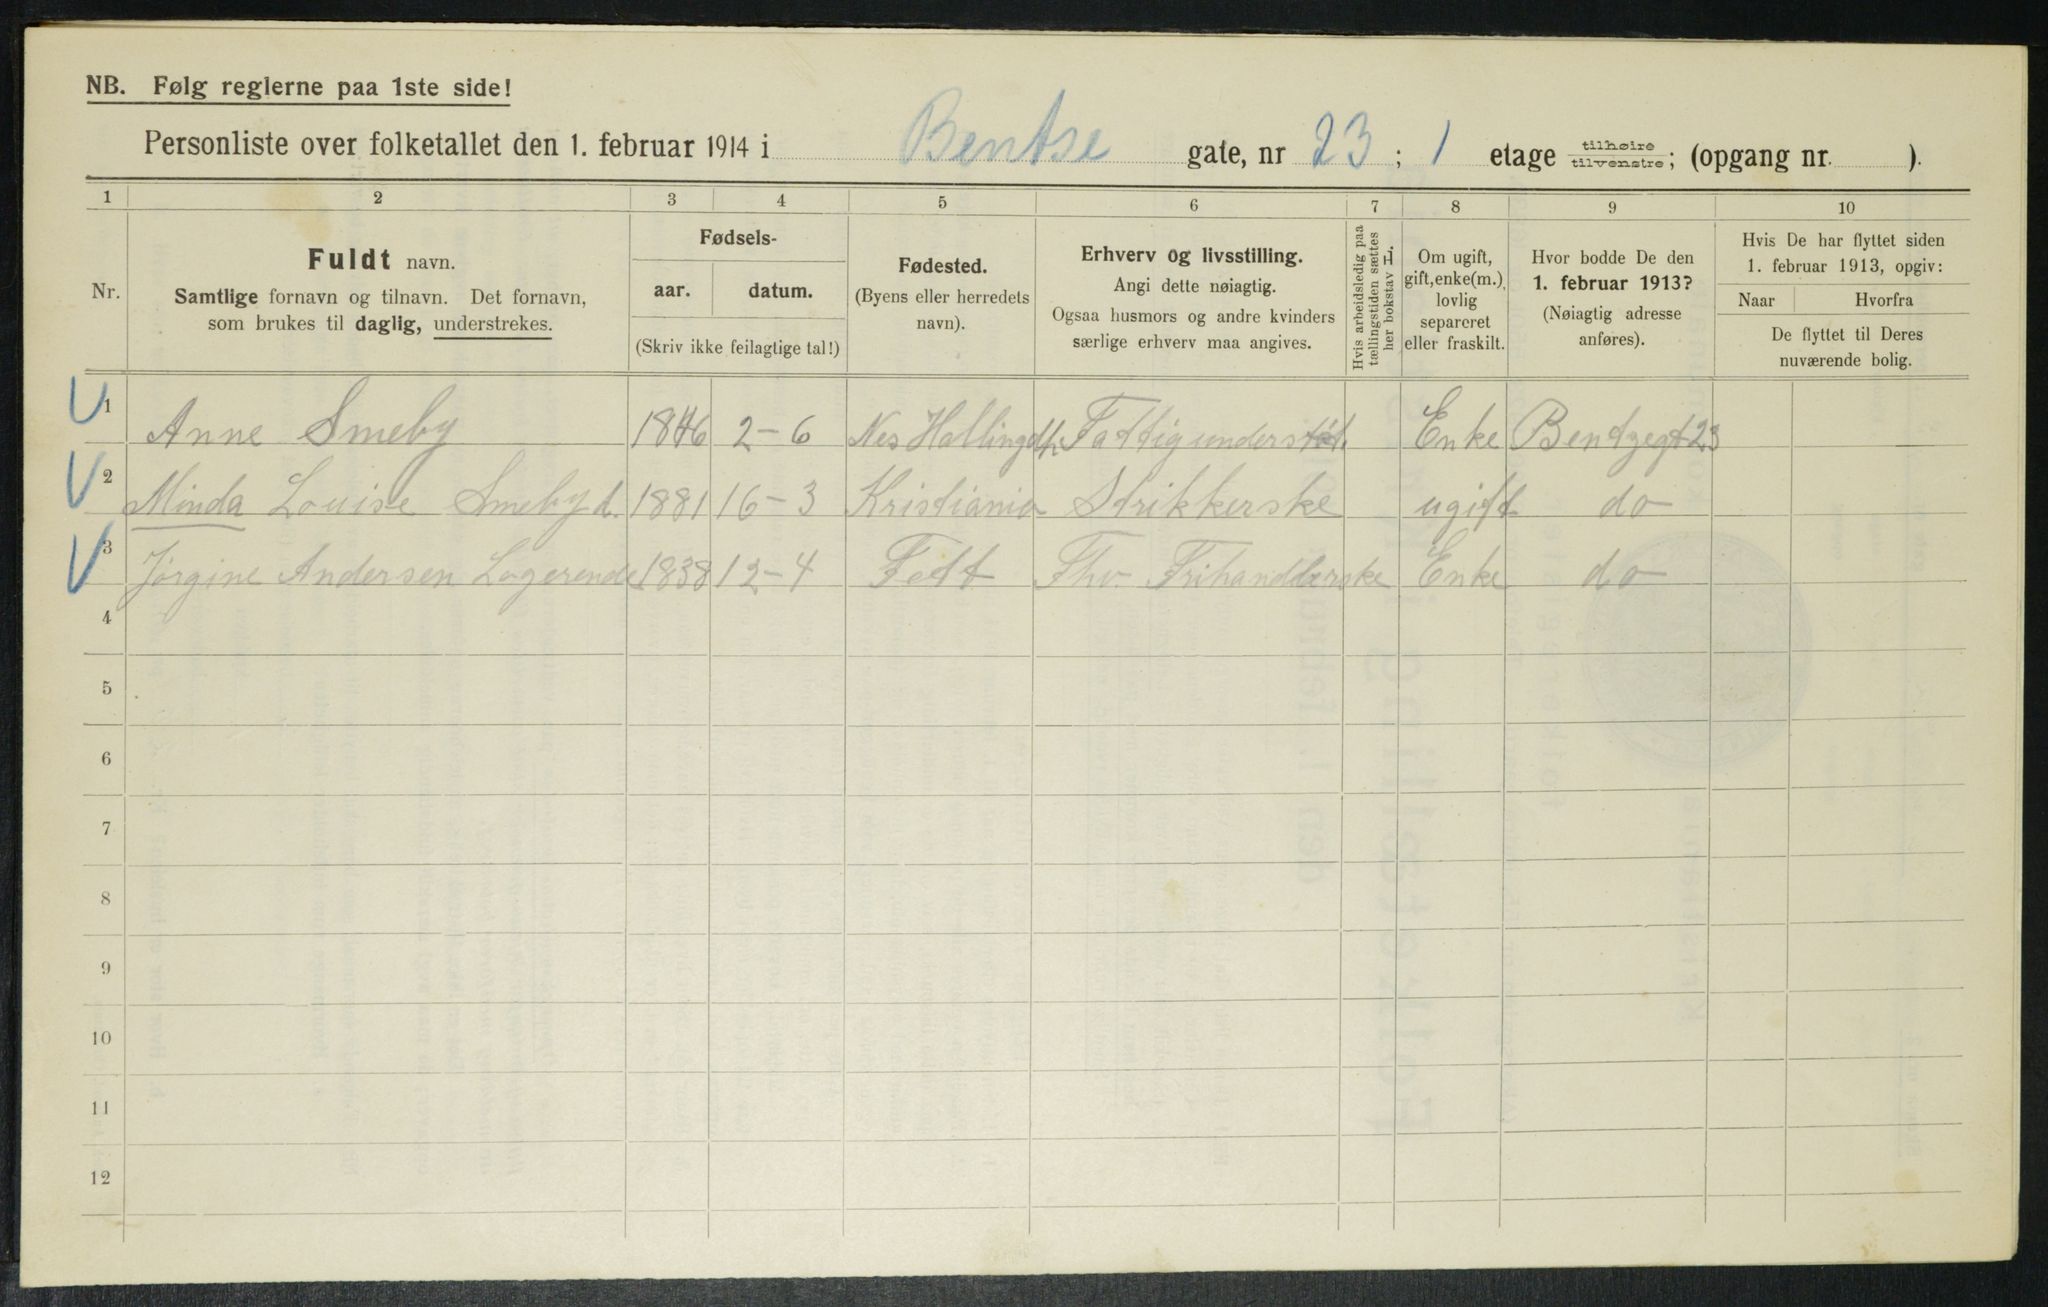 NB. Følg reglerne paa 1ste side!
Personliste over folketallet den 1. februar 1914 i Bentse gate, nr 23; 1 etage tilhøire tilvenstre; (opgang nr. ).
1 2 3 4 5 6 7 8 9 10
Nr.
Fuldt navn.
Samtlige fornavn og tilnavn. Det fornavn,
som brukes til daglig, understrekes.
Fødsels-
aar. datum.
(Skriv ikke feilagtige tal!)
Fødested.
(Byens eller herredets
navn).
Erhverv og livsstilling.
Angi dette nøiagtig.
Ogsaa husmors og andre kvinders
særlige erhverv maa angives.
Hvis arbeidsledig paa
tællingstiden sættes
her bokstav L.
Om ugift,
gift, enke(m.),
lovlig
separeret
eller fraskilt.
Hvor bodde De den
1. februar 1913?
(Nøiagtig adresse
anføres).
Hvis De har flyttet siden
1. februar 1913, opgiv:
Naar Hvorfra
De flyttet til Deres
nuværende bolig.
1 Anne Smeby 1846 2-6 Nes Hallingd. Fattigunderstøt. Enke Bentzegt 23
2 Minda Louise Smeby d. 1881 16-3 Kristiania Strikkerske ugift do
3 Jørgine Andersen Logerende 1838 12-4 Fett Fhv. Frihandlerske Enke do
4
5
6
7
8
9
10
11
12